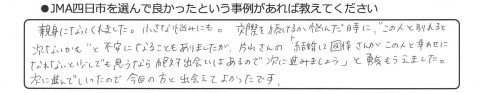 ●JMA四日市を選んで良かったという事例があれば教えてください
親身になってくれました。小さな悩みにも。交際を続けるか悩んだ時に、"この人と別れると
次ないかも"と不安になることもありましたが、片山さんの「結婚して さんがこの人と幸わせに
なれないと少しでも思うなら絶対出会いはあるので次に進みましょう」と勇気もらえました。
次に進んでしいったので今の方と出会えてよかったです。